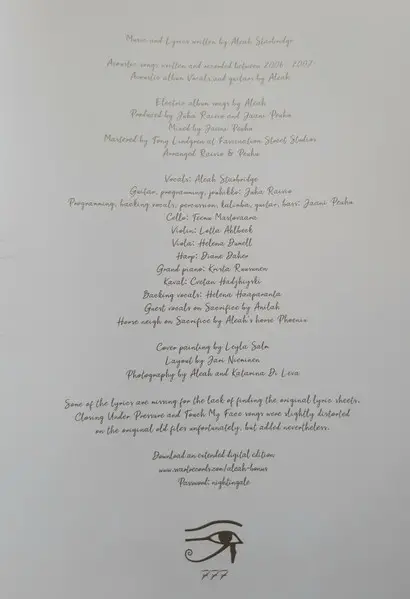 Music and Lyrics written by Aleah Starbridge
Acoustic songs written and recorded between 2004 - 2007
Acoustic album Vocals and guitars by Aleah
Electric album songs by Aleah
Produced by Juha Raivio and Jaani Peuhu
Mixed by Jaani Peuhu
Mastered by Tony Lindgren of Fascination Street Studios
Arranged Raivio & Peuhu
Vocals: Aleah Starbridge
Guitar, programming, jouhikko: Juha Raivio
Programming, backing vocals, percussion, kalimba, guitar, bass: Jaani Peuhu
Cello: Teemu Mastovaara
Violin: Lotta Ahlbeck
Viola: Helena Dumell
Harp: Diane Daher
Grand piano: Krista Ruusinen
Kaval: Cvetan Hadzhiyski
Backing vocals: Helena Haaparanta
Guest vocals on Sacrifice by Anilah
Horse neigh on Sacrifice by Aleah's horse Phoenix
Cover painting by Leyla Salm
Layout by Jari Nieminen
Photography by Aleah and Katarina Di Leva
Some of the lyrics are missing for the lack of finding the original lyric sheets.
Closing Under Pressure and Touch My Face songs were slightly distorted
on the original old files unfortunately, but added nevertheless.
Download an extended digital edition
www.svartrecords.com/aleah-bonus
Password: nightingale
777